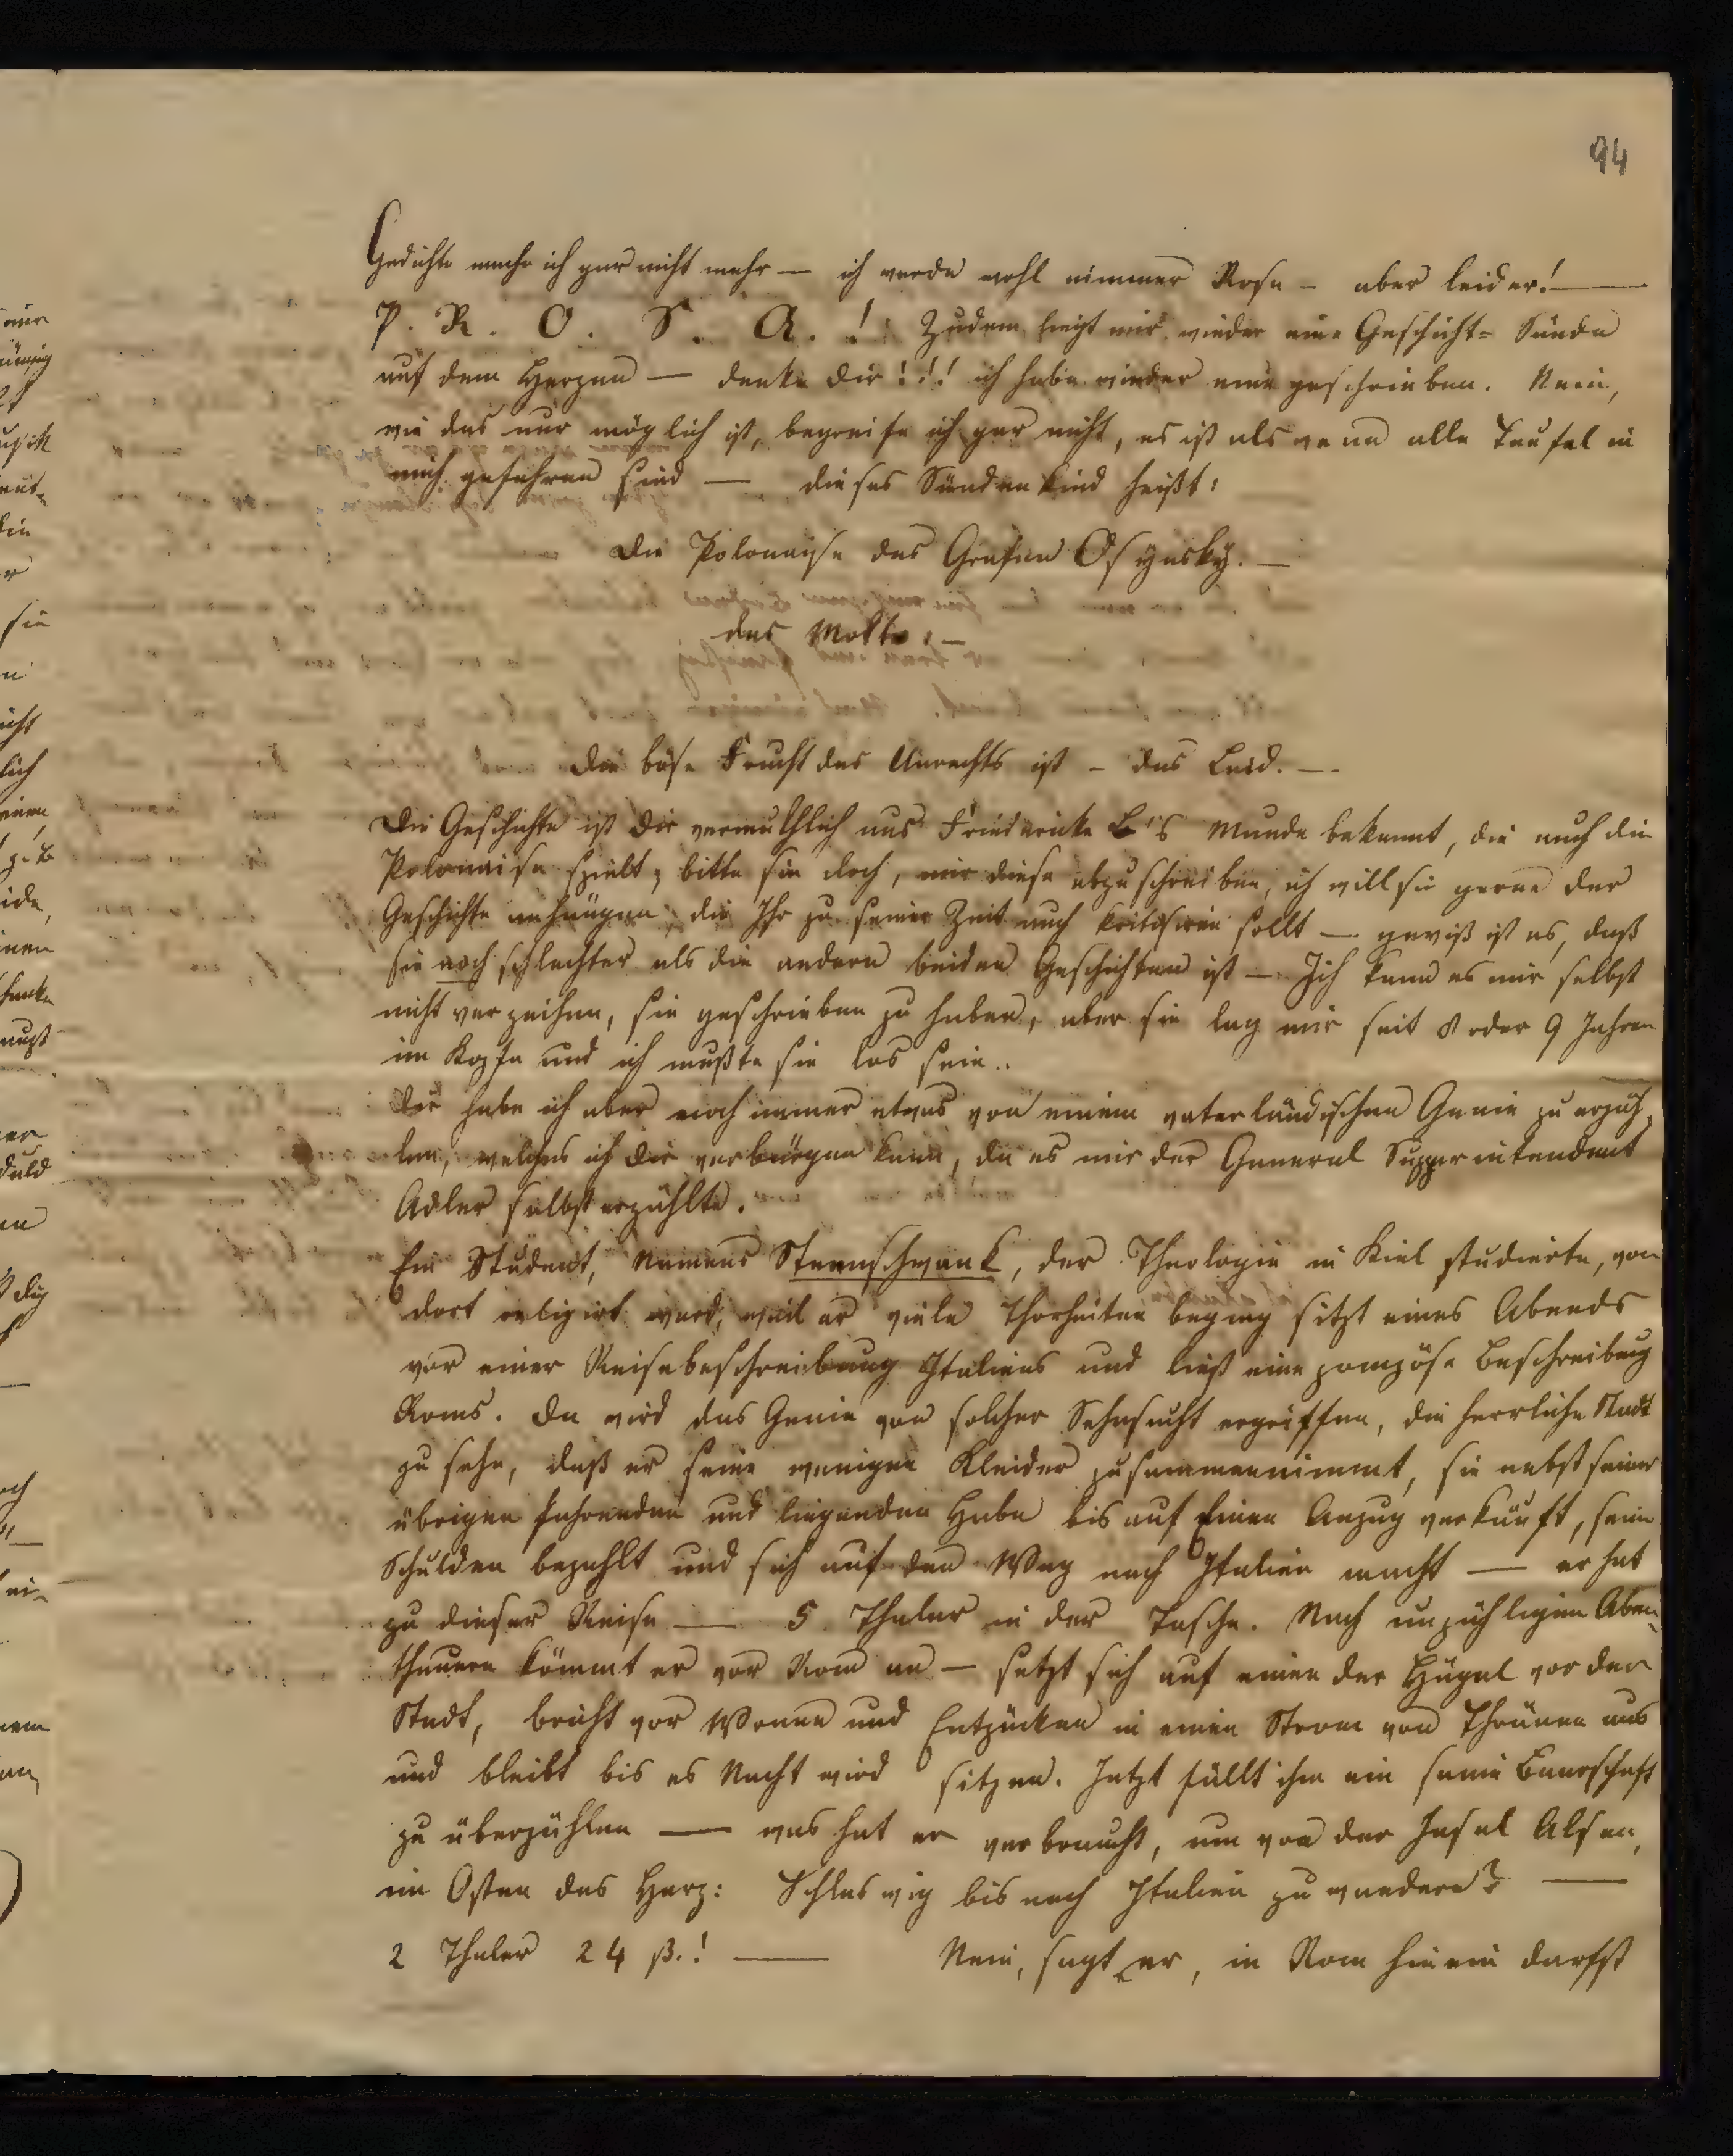 94
Gedichte mache ich gar nicht mehr — ich werde wohl nimmer Rosa — aber leider! —
P. R. O. S. A. ! Zudem liegt mir wieder eine Geschicht= Sünde
auf dem Herzen — denke Dir!!! ich habe wieder eine geschrieben. Nein,
wie das nur möglich ist, begreife ich gar nicht, es ist als wenn alle Teufel in
mich gefahren sind — dieses Sündenkind heißt:
Die Polonayse des Grafen Osynsky. —
das Motto: —
Die böse Frucht des Unrechts ist – das Leid. —
Die Geschichte ist Dir vermuthlich aus Friedericke B's Munde bekannt, die auch die
Polonaise spielt; bitte sie doch, mir diese abzuschreiben, ich will sie gerne der
Geschichte anhängen, die Ihr zu seiner Zeit auch kritisiren sollt — gewiß ist es, daß
sie noch schlechter als die andern beiden Geschichten ist — Ich kann es mir selbst
nicht verzeihen, sie geschrieben zu haben, aber sie lag mir seit 8 oder 9 Jahren
im Kopfe und ich mußte sie los sein..
Dir habe ich aber noch immer etwas von einem vaterländischen Genie zu erzäh=
len, welches ich Dir verbürgen kann, da es mir der General Supperintendent
Adler selbst erzählte.
Ein Student, Namens Steenschwank, der Theologie in Kiel studierte, von
dort religirt ward, weil er viele Thorheiten beging sitzt eines Abends
vor einer Reisebeschreibung Italiens und ließ eine pompöse Beschreibung
Roms. Da wird das Genie von solcher Sehnsucht ergriffen, die herrliche Stadt
zu sehn, daß er seine wenigen Kleider zusammennimmt, sie nebst seiner
übrigen fahrenden und liegenden Habe bis auf Einen Anzug verkauft, seine
Schulden bezahlt und sich auf den Weg nach Italien macht — er hat
zu dieser Reise — 5 Thaler in der Tasche. Nach unzähligen Aben=
theuern kömmt er vor Rom an — setzt sich auf einen der Hügel vor der
Stadt, bricht vor Wonne und Entzücken in einen Strom von Thränen aus
und bleibt bis es Nacht wird sitzen. Jetzt fällt ihm ein seine Baarschaft
zu überzählen — was hat er verbraucht, um von der Insel Alsen,
im Osten des Herz: Schleswig bis nach Italien zu wandern? —
2 Thaler 24 ß.! — Nein, sagt er, in Rom hinein darfst